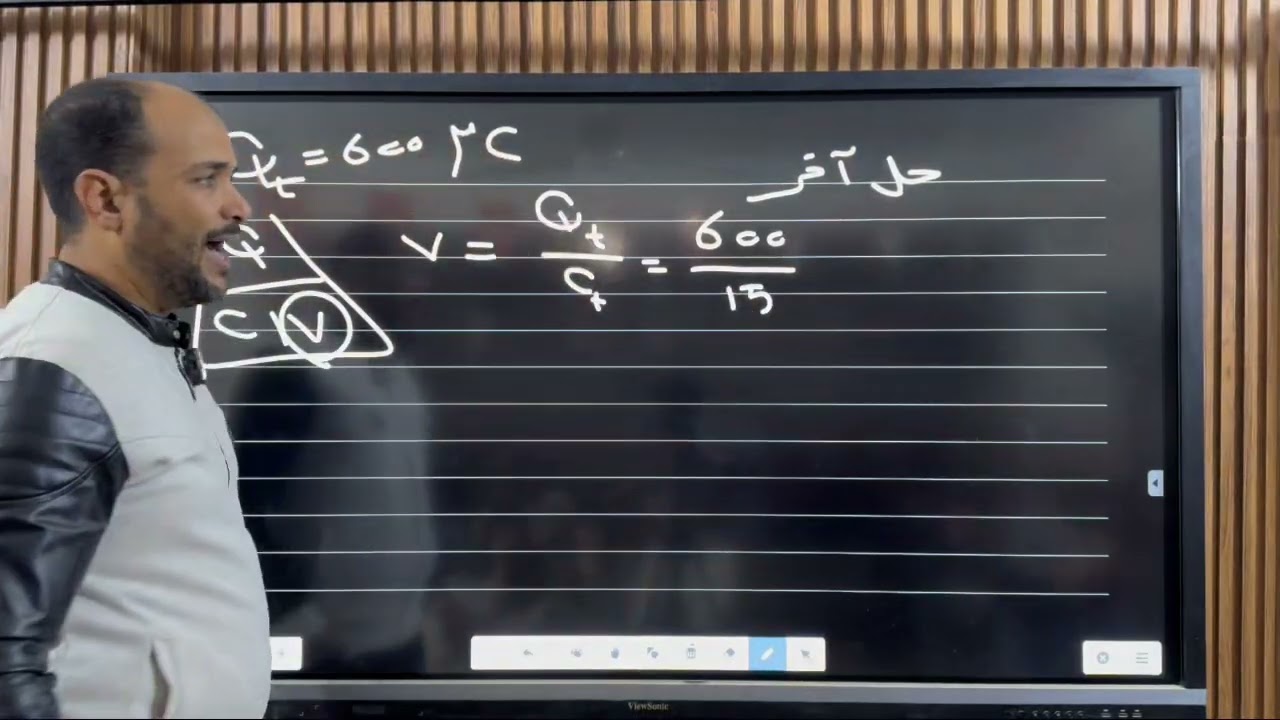 Qt = 600 μC
حل آخر
V = Qt / Ct = 600 / 15
Q
C V
ViewSonic